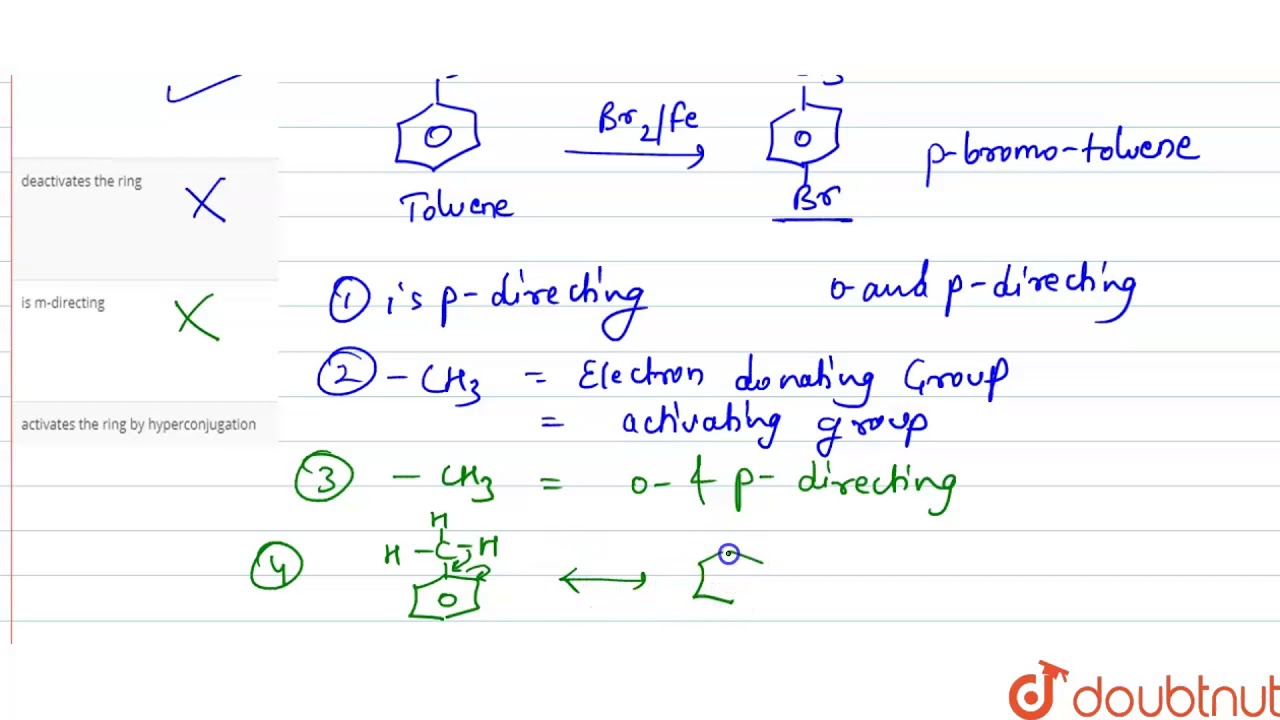 Br2/Fe
p-bromo-toluene
Toluene
Br
deactivates the ring
① is p-directing
o-and p-directing
is m-directing
② -CH3 = Electron donating Group
= activating group
activates the ring by hyperconjugation
③ -CH3 = o- & p- directing
H
④ H-C-H
doubtnut